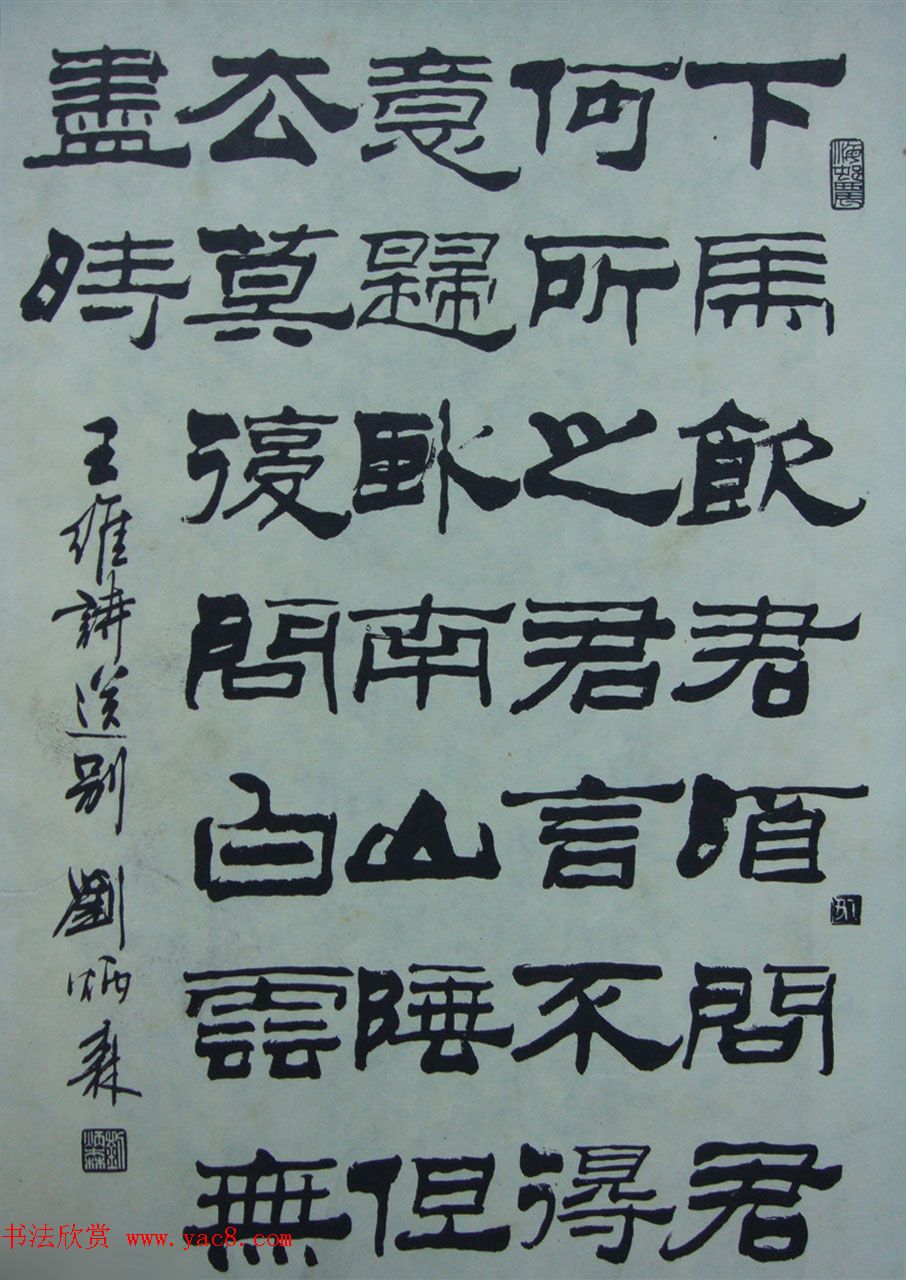 下馬飲君酒問君
何所之君言不得
意歸臥南山陲但
去莫復問白雲無
盡時
王維詩送別 劉炳森
劉炳森
书法欣赏 www.yac8.com